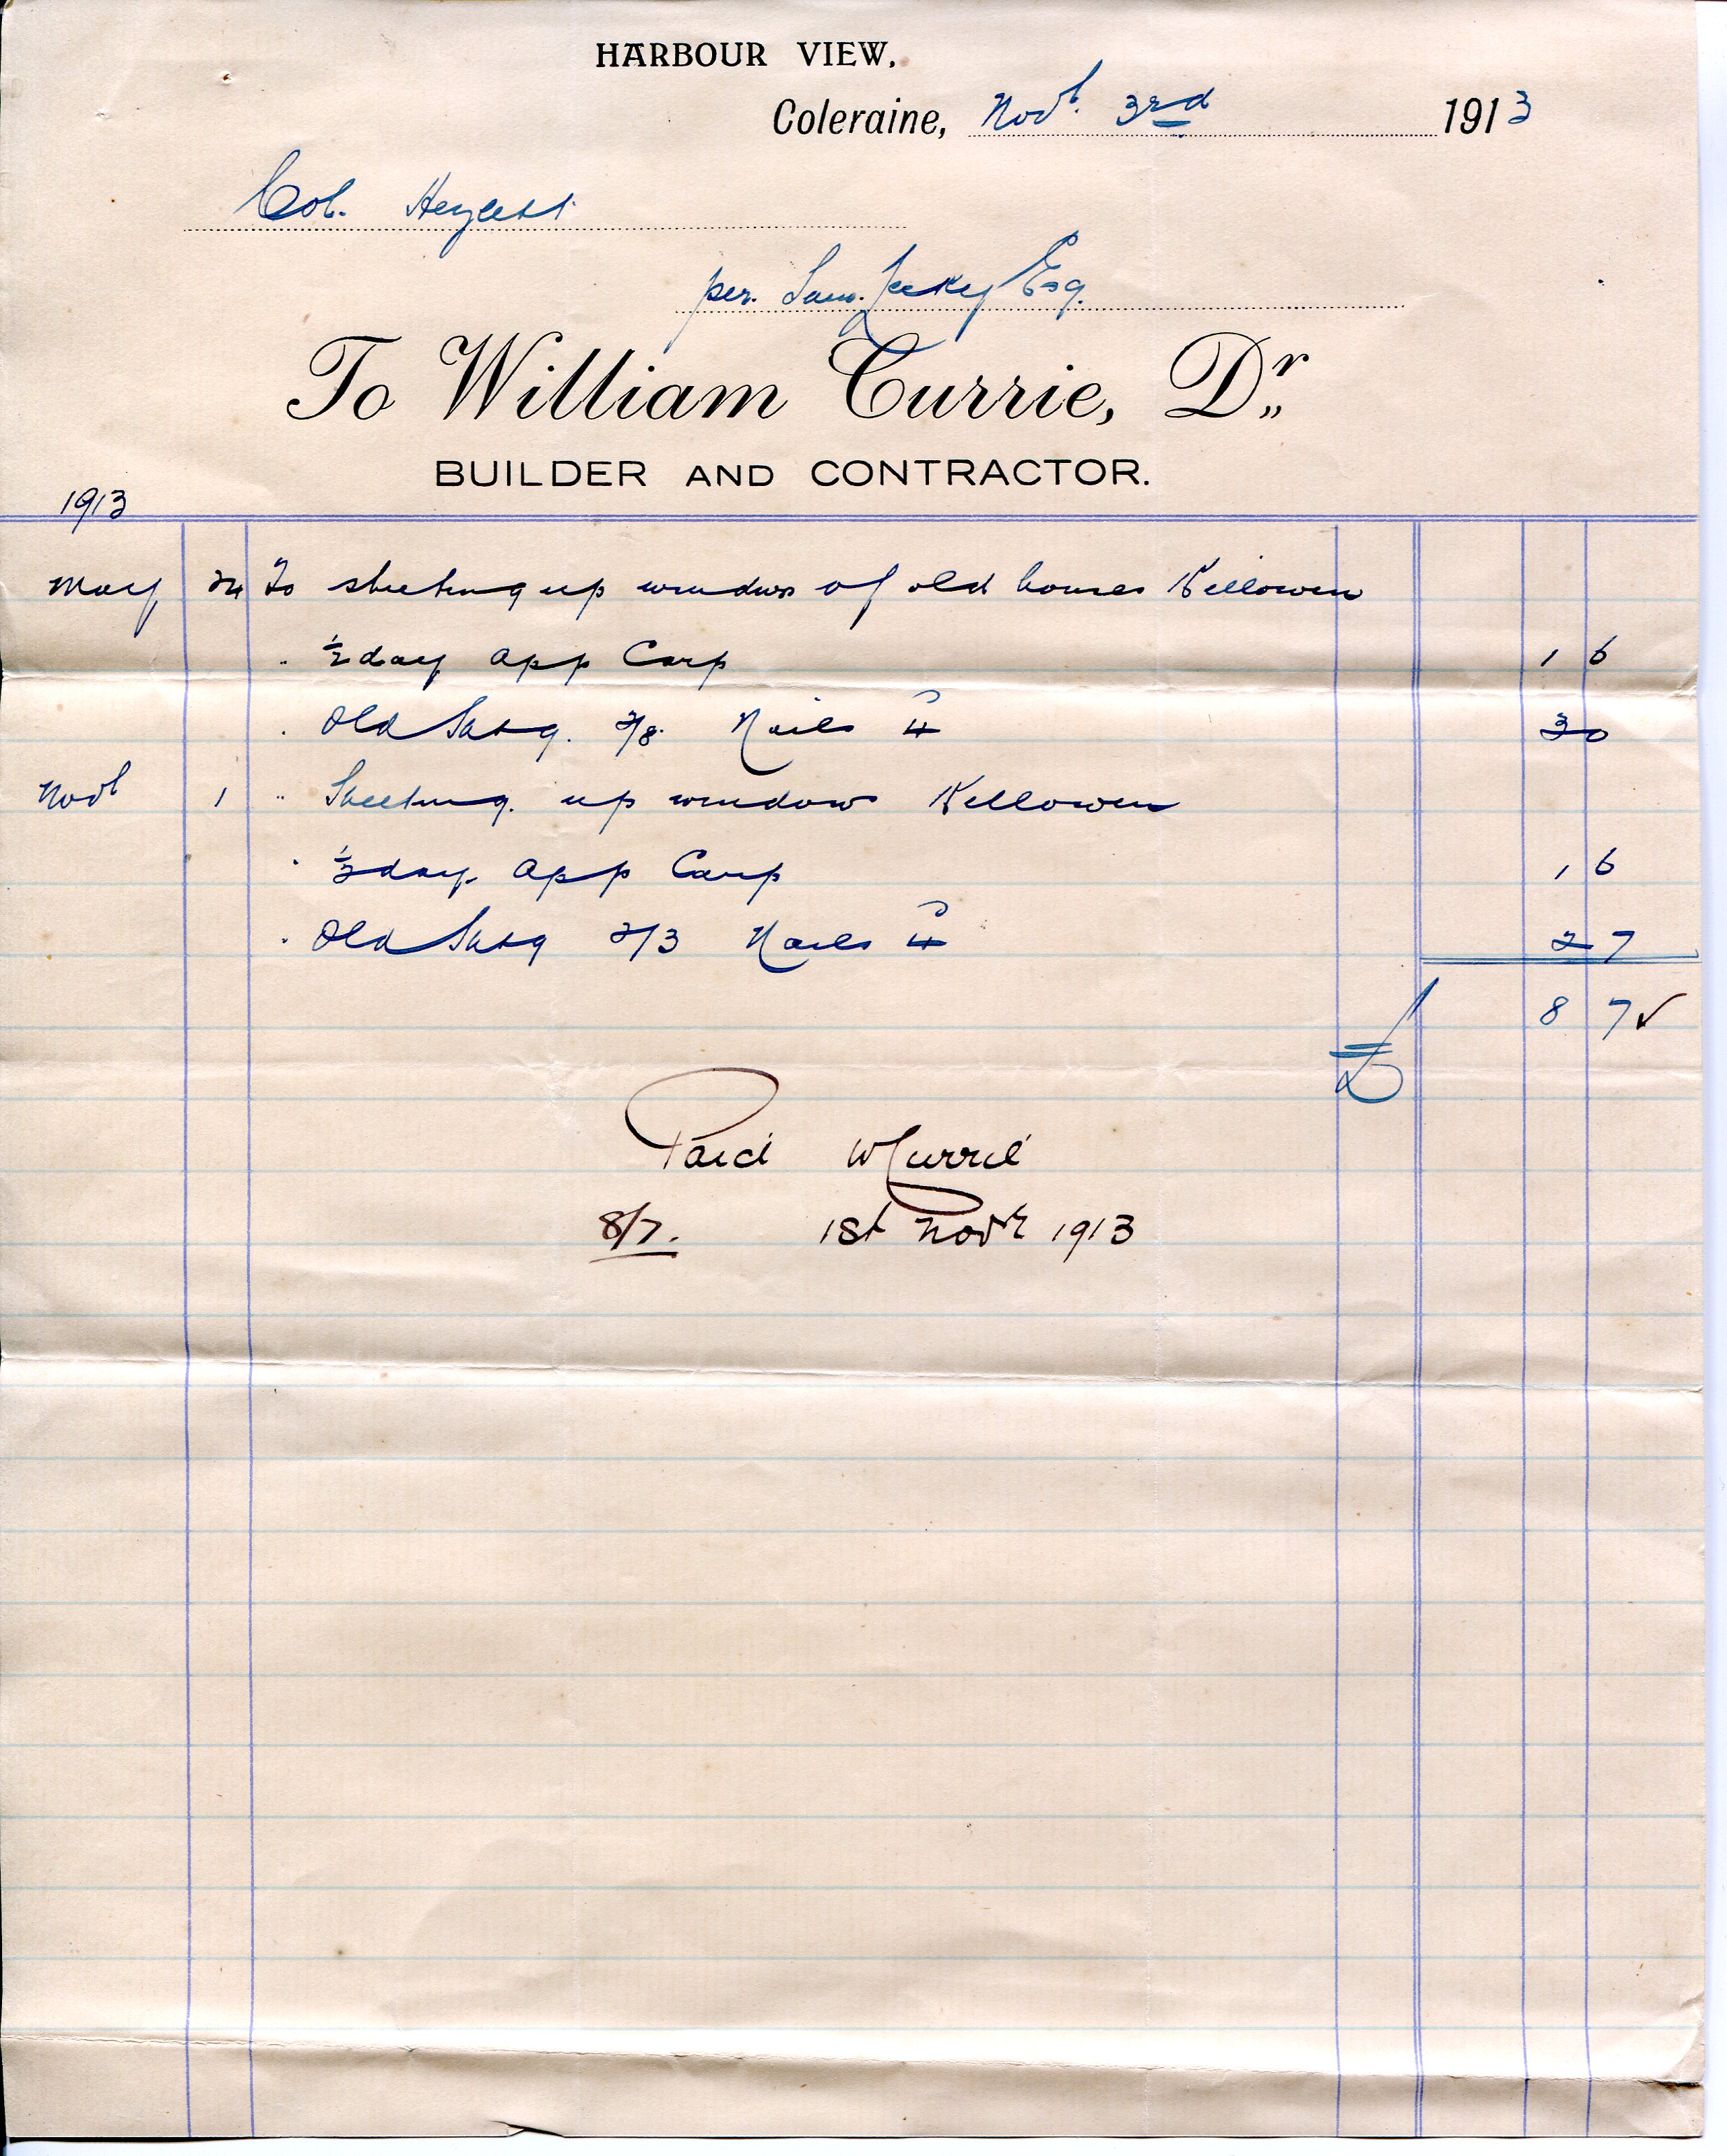 HARBOUR VIEW.
Coleraine, Novb. 3rd 1913
Col. Heygate
per. Sam. Esq.
To William Currie, Dr.,
BUILDER AND CONTRACTOR.
1913
May 24 To sheeting up windows of old houses Killowen
" ½ day App Carp 1 6
" Old 2/8. Nails 4d 3 0
Novb 1 " Sheeting. up windows Killowen
" ½ day. App Carp 1 6
" Old 2/3 Nails 4d 2 7
£ 8 7 ✓
Paid W Currie
8/7. 1st Novr 1913